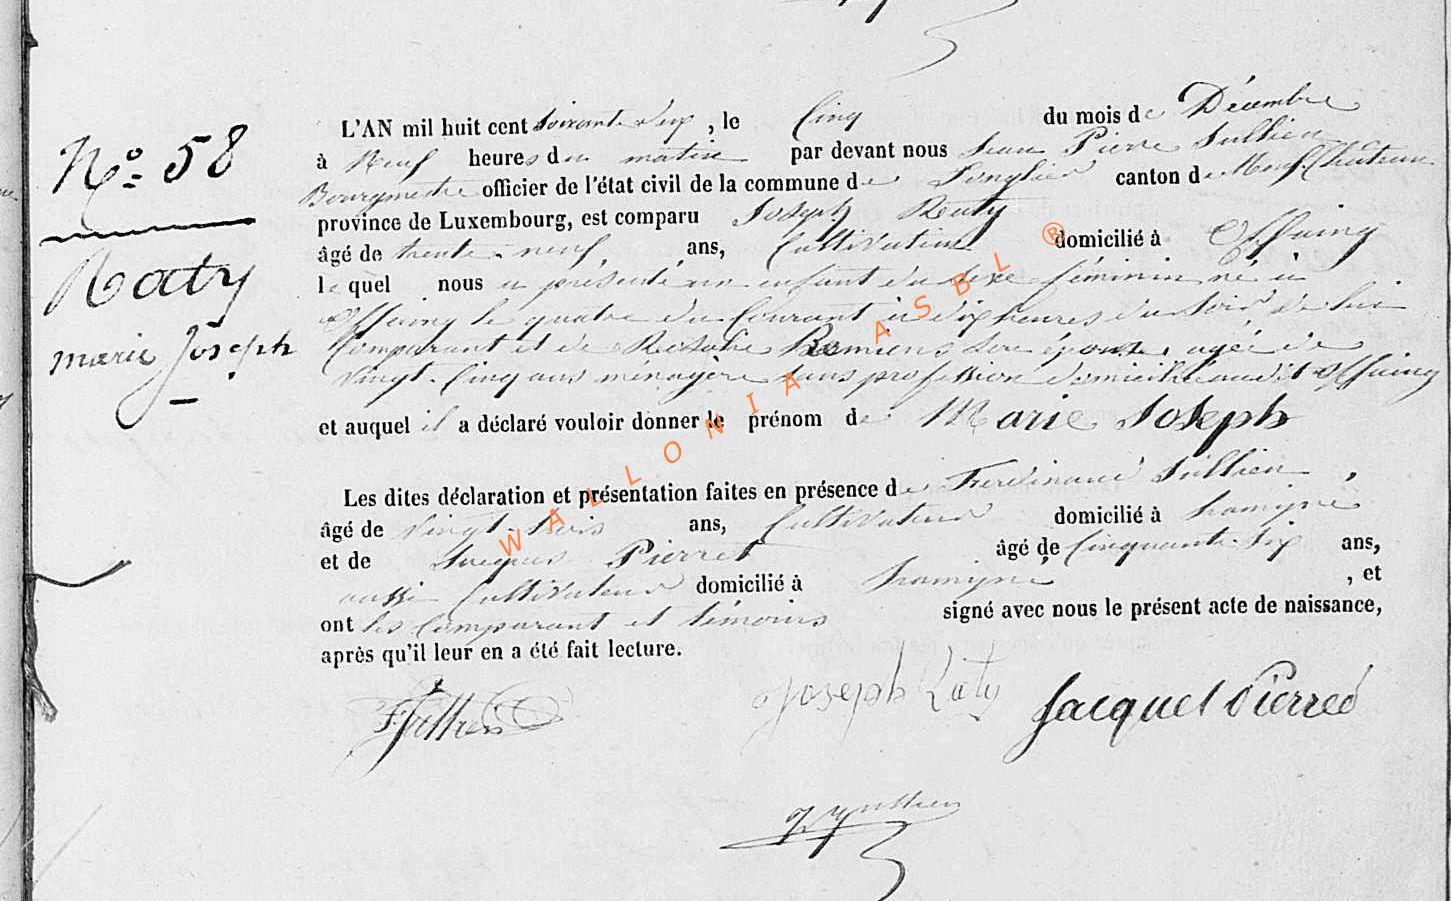 N.º 58
Raty
marie Joseph
L'AN mil huit cent soixante Six, le Cinq du mois de Décembre
à Neuf heures du matin par devant nous Jean Pierre Sulbien
Bourgmestre officier de l'état civil de la commune de Longlier canton de Neufchateau
province de Luxembourg, est comparu Joseph Raty
âgé de trente-neuf, ans, Cultivateur domicilié à Offaing
lequel nous a présenté un enfant du sexe féminin né à
Offaing le quatre du Courant à dix heures du Soir, de lui
Comparant et de Rosalie Remiens Son épouse, agée de
Vingt-Cinq ans ménagère sans profession domiciliée audit Offaing
et auquel il a déclaré vouloir donner le prénom de Marie Joseph
Les dites déclaration et présentation faites en présence de Ferdinand Sulbien,
âgé de Vingt-trois ans, Cultivateur domicilié à Lamigné
et de Jacques Pierret âgé de Cinquante-Six ans,
aussi Cultivateur domicilié à Lamigné, et
ont les Comparant et témoins signé avec nous le présent acte de naissance,
après qu'il leur en a été fait lecture.
Joseph Raty
Jacquet Pierred
WALLONIA ASBL ®